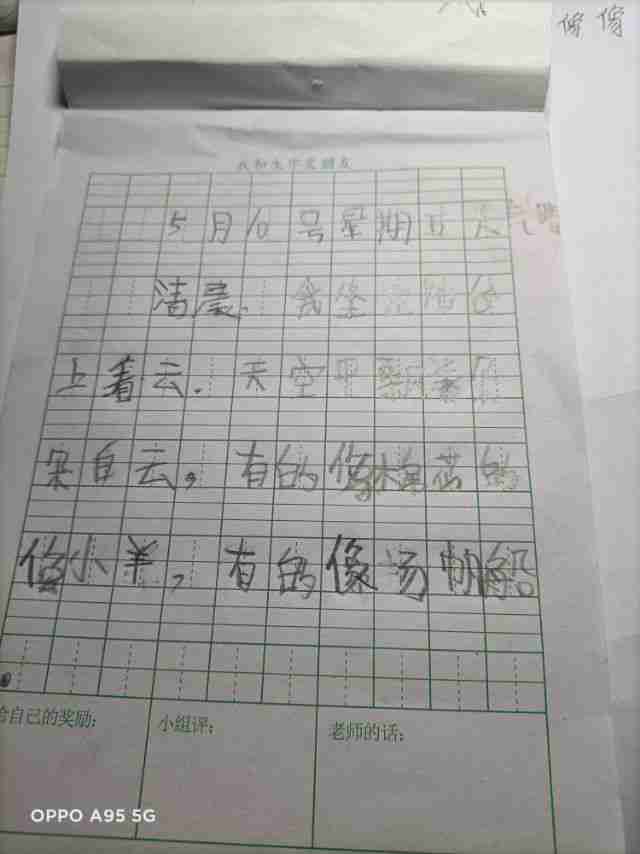 我和大作家交朋友
5月10号星期五 天气晴
清晨,我坐
上着云.天空中飘着
朵白云,有的像棉花 的
像小羊,有的像扬帆船
给自己的奖励:
小组评:
老师的话:
OPPO A95 5G